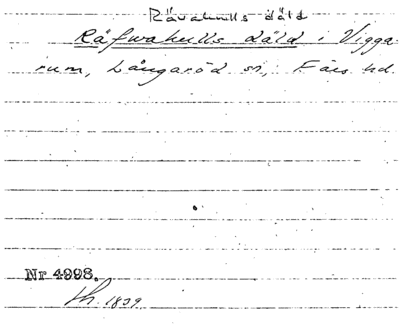 Rävahulls däld
Räfwahulls däld i Vigga-
rum, Långaröd sn, Färs hd.
Nr 4998.
1839.